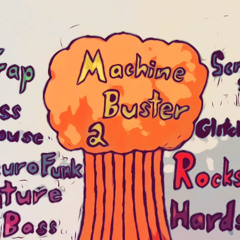 Trap
Machine
Buster
2
ss
ouse
euroFunk
uture
Bass
Glitch
Rocks
Hards